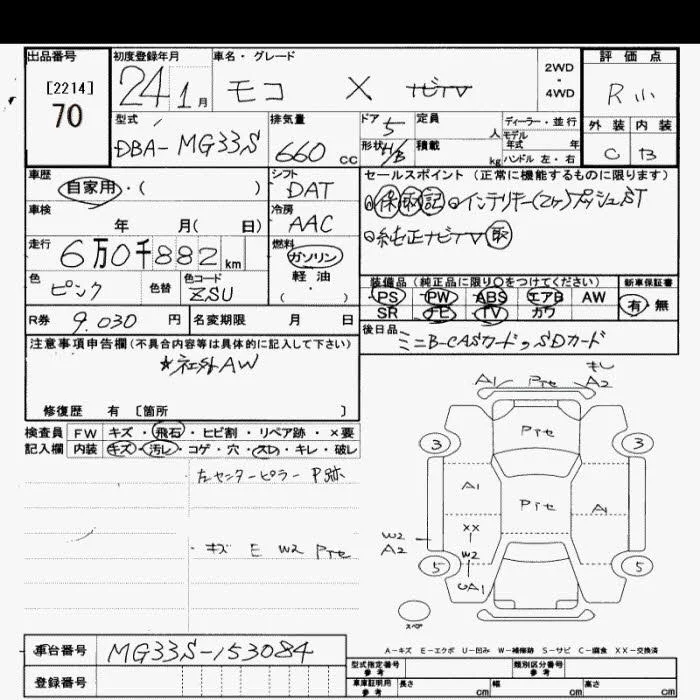 出品番号 初度登録年月 車名・グレード 評価点
[2214] 70 24 1月 モコ X ナビTV 2WD・4WD R
型式 排気量 ドア 5 定員 人 ディーラー・並行 外装 内装
DBA-MG33S 660 cc 形状 H/B 積載 kg モデル年式 年 ハンドル 左・右 C B
車歴 シフト セールスポイント (正常に機能するものに限ります)
自家用・( ) DAT 保 取 記 インテリキー(2ヶ)プッシュST
車検 冷房
年 月( 日) AAC 純正ナビTV 取
走行 6万0千882km 燃料 ガソリン 軽・油 ・( )
装備品 (純正品に限り〇をつけてください) 新車保証書
色 色替 色コード PS PW ABS エアB AW 有・無
ピンク ZSU SR ナビ TV カワ
R券 9.030 円 名変期限 月 日 後日品
ミニB-CASカード,SDカード
注意事項申告欄 (不具合内容等は具体的に記入して下さい)
*社外AW
修復歴 有 〔箇所 〕
検査員 FW キズ・飛石・ヒビ割・リペア跡・×要
記入欄 内装 キズ・汚レ・コゲ・穴・スレ・キレ・破レ
左センターピラー P跡
・キズ E W2 Pte
A1 Pte A2
3 Pte 3
A1 Pte A1
XX
W2 A2 W2
5 UA1 5
スペア
A-キズ E-エクボ U-凹み W-補修跡 S-サビ C-腐食 XX-交換済
車台番号 MG33S-153084 型式指定番号 参考 類別区分番号 参考
登録番号 車庫証明用 参考 長さ cm 幅 cm 高さ cm